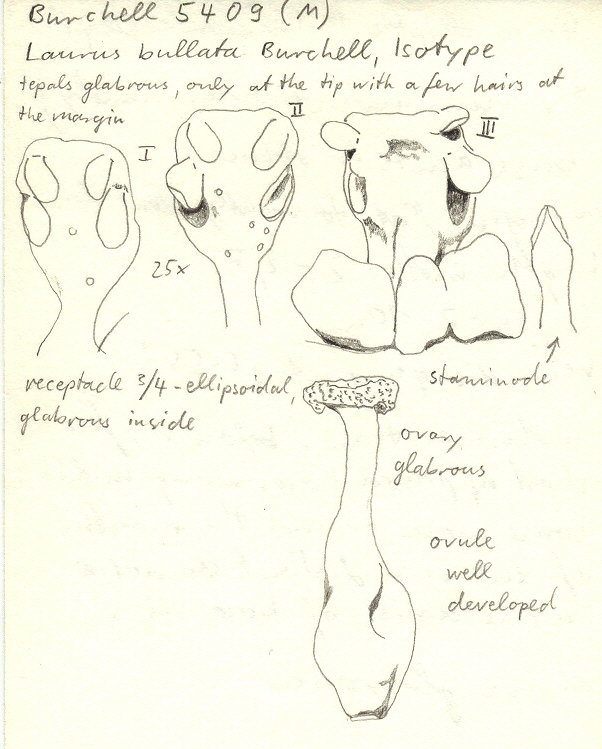 Burchell 5409 (M)
Laurus bullata Burchell, Isotype
tepals glabrous, only at the tip with a few hairs at
the margin
I
II
III
25x
staminode
receptacle 3/4-ellipsoidal,
glabrous inside
ovary
glabrous
ovule
well
developed